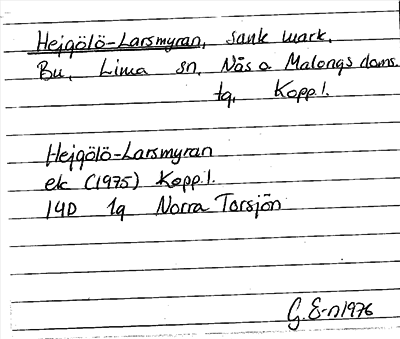 Hejgölö-Larsmyran, sank mark.
Bu. Lima sn, Nås o Malungs doms.
tg, Kopp.l.
Hejgölö-Larsmyran
ek (1975) Kopp.l.
14D 1g Norra Torsjön
G. E-n 1976